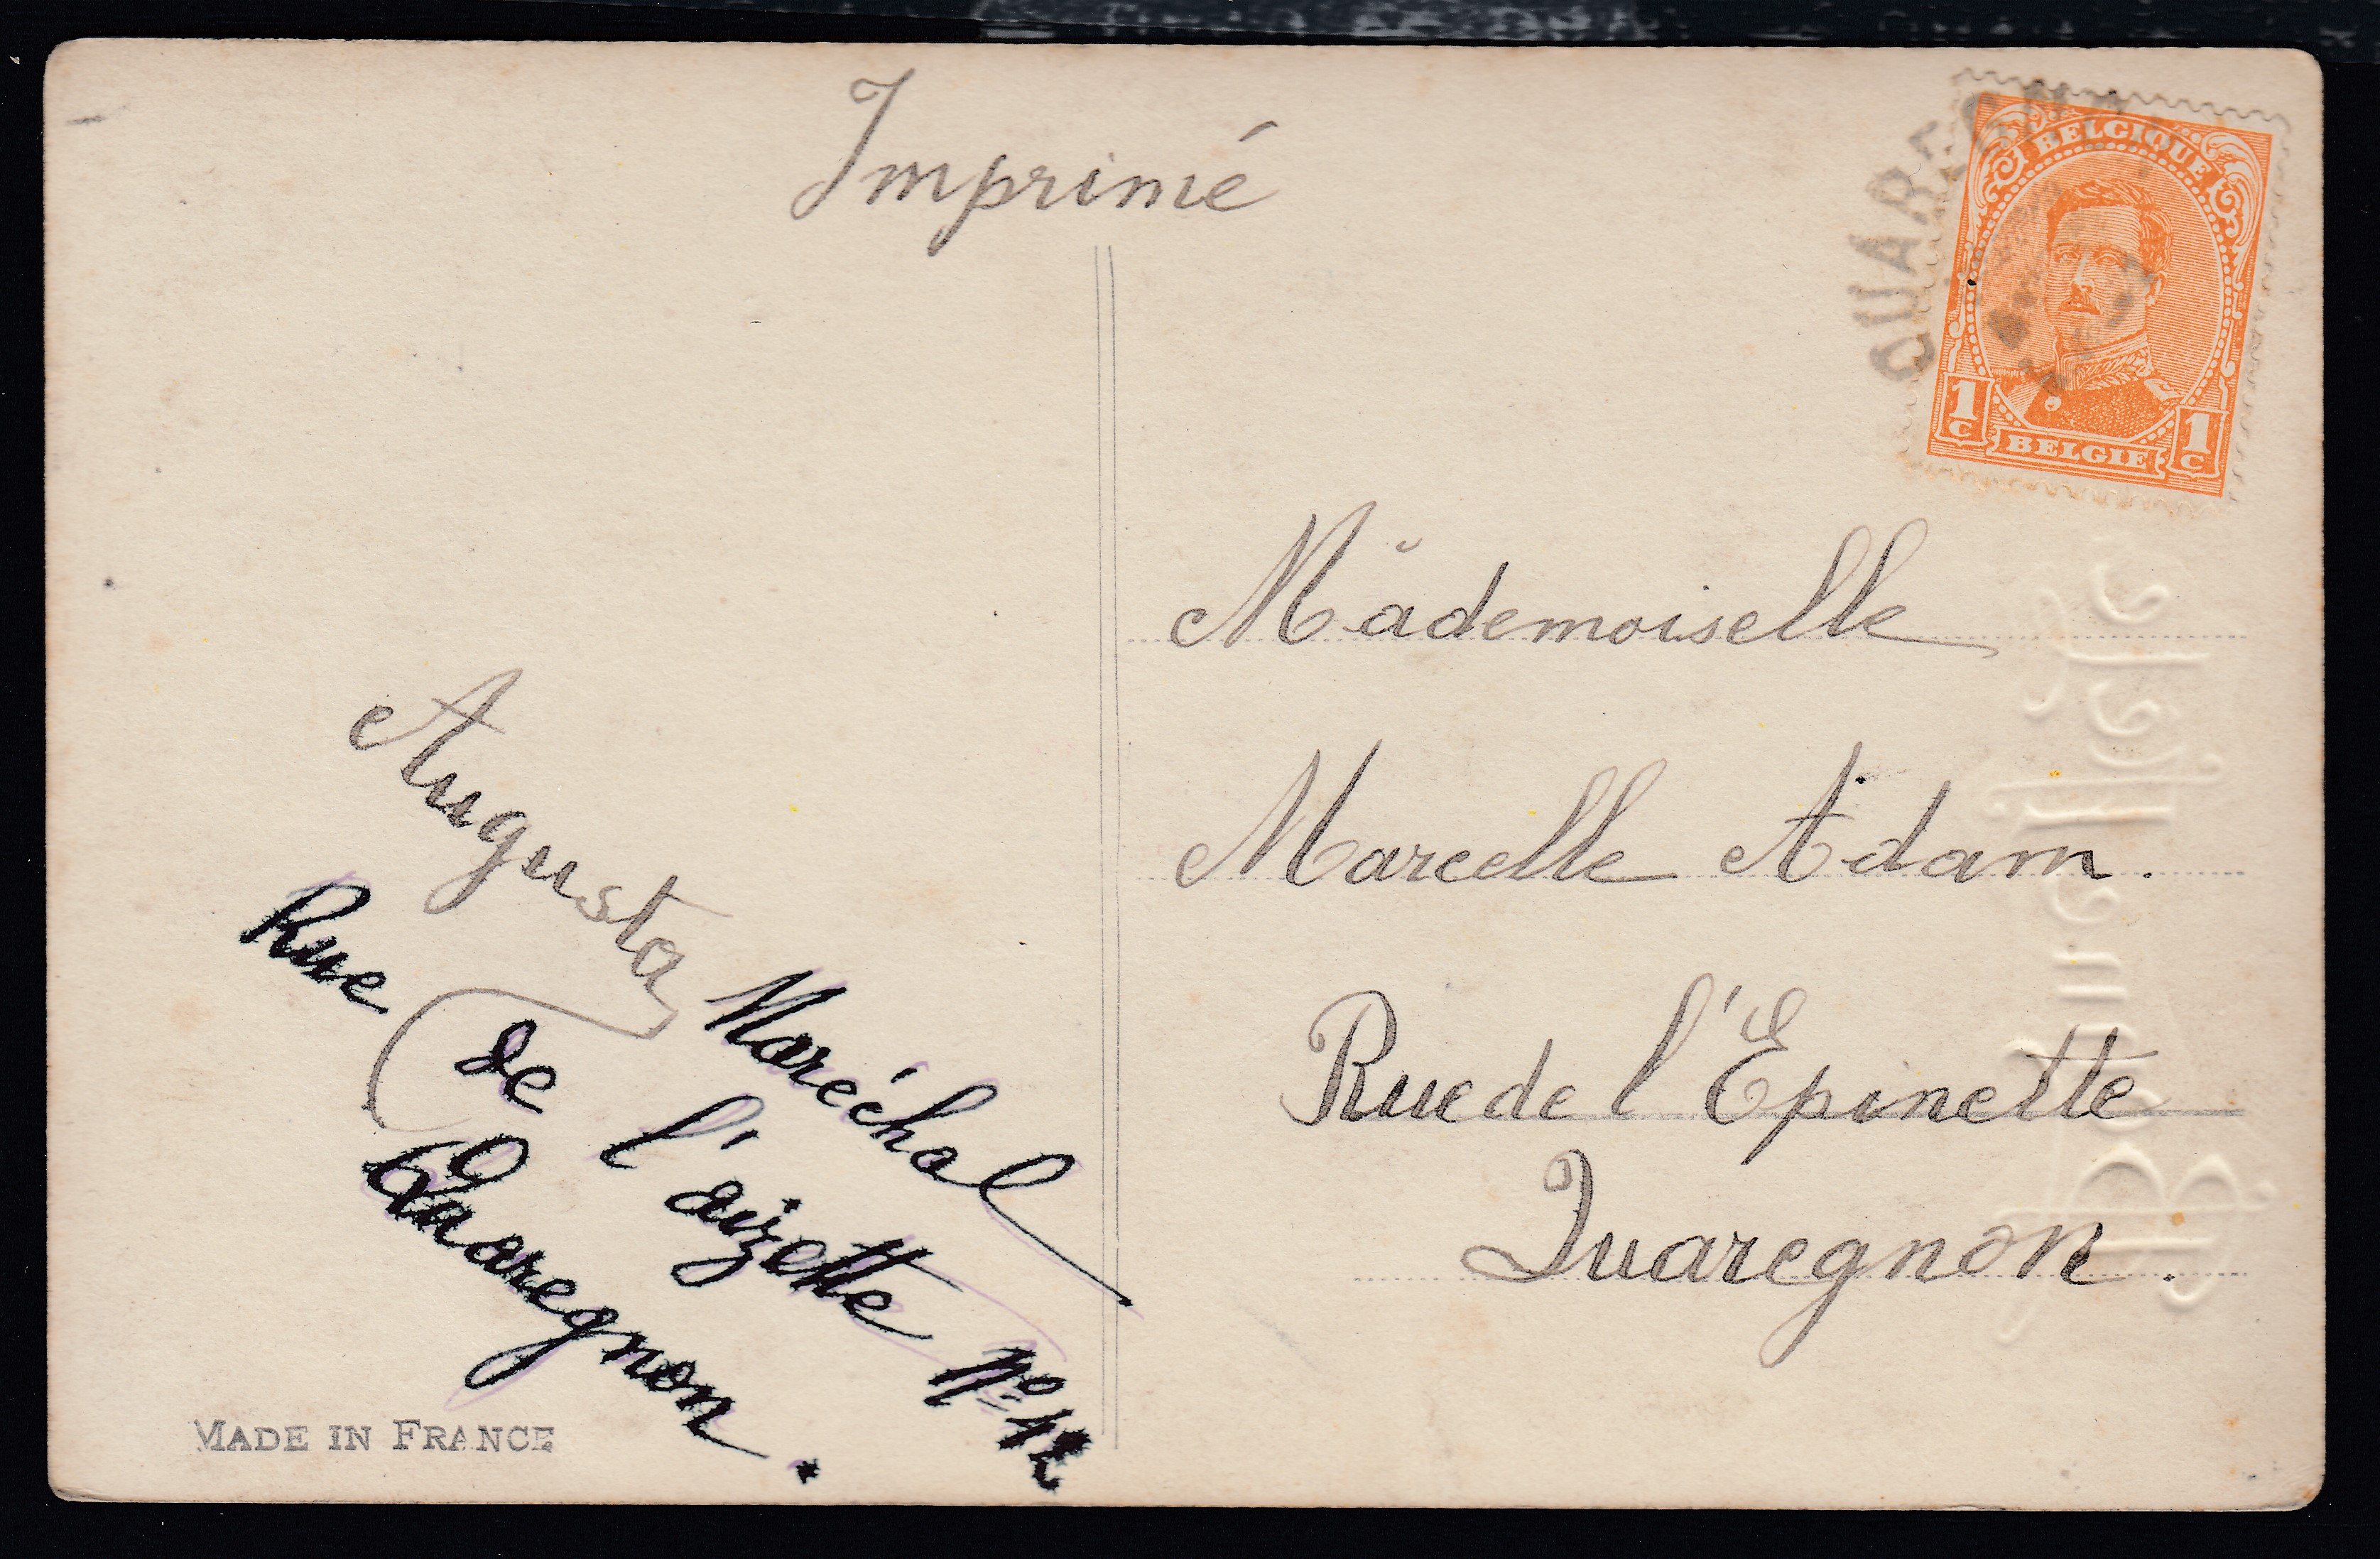 Imprimé
QUAREGNO
BELGIQUE
1 C
1 C
BELGIE
Mademoiselle
Marcelle Adam.
Rue de l'Epinette
Quaregnon.
Augusta Maréchal
Rue de l'aizette N° 12
Quaregnon.
MADE IN FRANCE